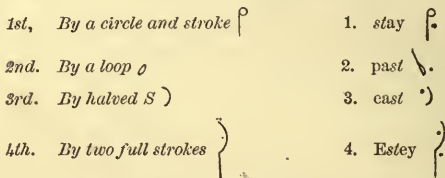 1st, By a circle and stroke 1. stay
2nd. By a loop 2. past
3rd. By halved S 3. cast
4th. By two full strokes 4. Estey